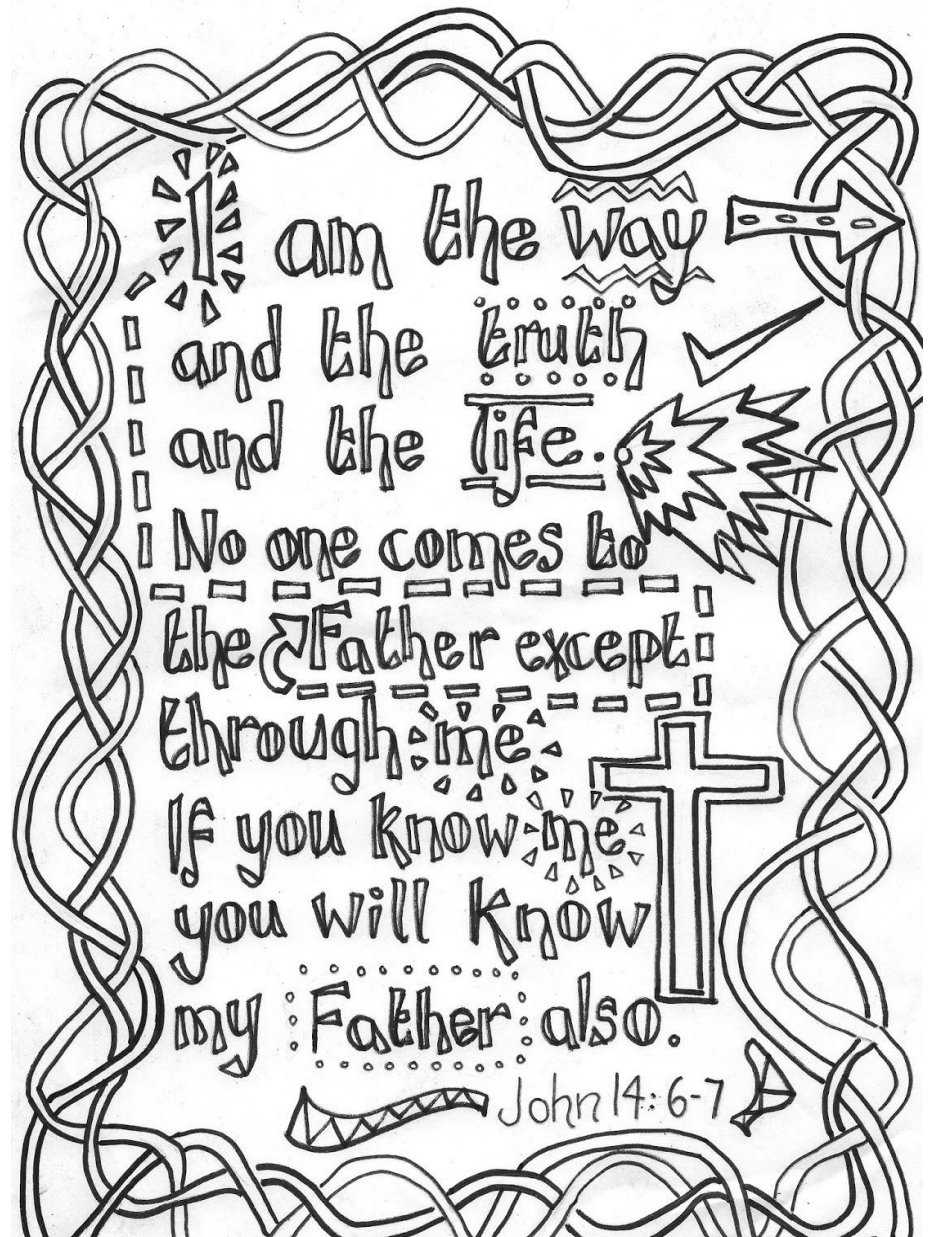 I am the way
and the truth
and the life.
No one comes to
the Father except
through me
If you know me
you will know
my Father also.
John 14:6-7